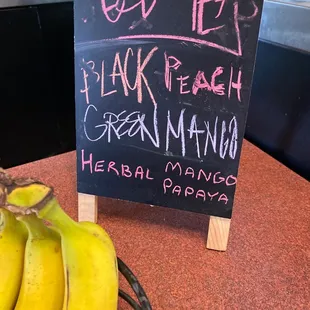 BLACK PEACH
GREEN MANGO
HERBAL MANGO
PAPAYA